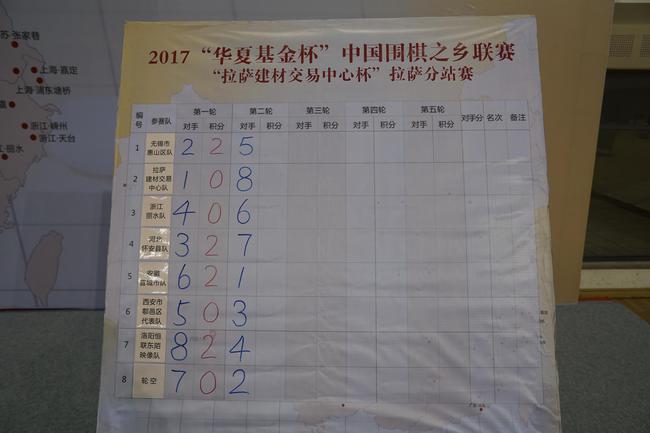 苏·张家巷
上海·嘉定
上海·浦东塘桥
浙江·嵊州
浙江·天台
·丽水
2017“华夏基金杯”中国围棋之乡联赛
“拉萨建材交易中心杯”拉萨分站赛
编号 参赛队 第一轮 第二轮 第三轮 第四轮 第五轮 对手分 名次 备注
对手 积分 对手 积分 对手 积分 对手 积分 对手 积分
1 无锡市惠山区队 2 2 5
2 拉萨建材交易中心队 1 0 8
3 浙江丽水队 4 0 6
4 河北怀安县队 3 2 7
5 安徽宣城市队 6 2 1
6 西安市鄠邑区代表队 5 0 3
7 洛阳恒联东陌映像队 8 2 4
8 轮空 7 0 2